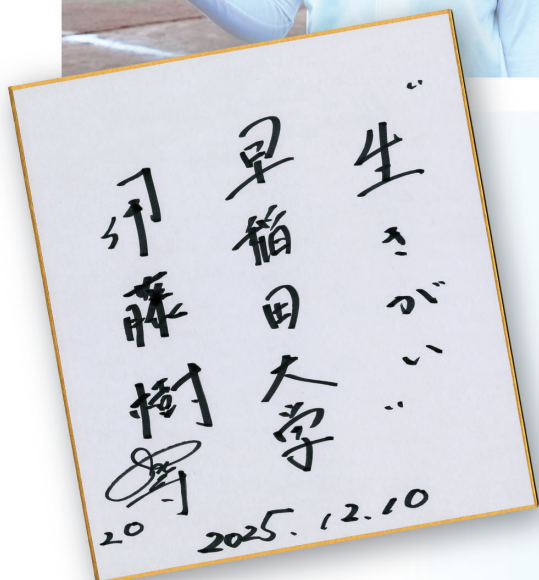 “生きがい”
早稲田大学
伊藤樹
20
2025.12.10